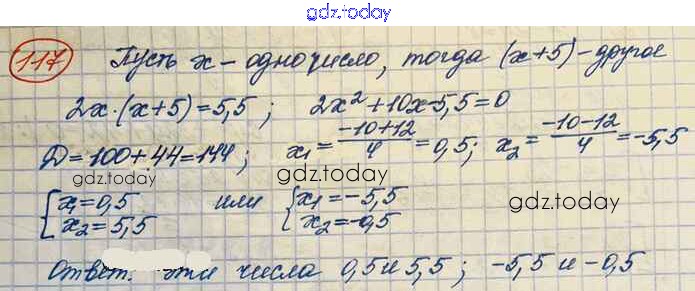 gdz.today
117 Пусть x - одно число, тогда (x+5) - другое
2x·(x+5)=5,5; 2x²+10x-5,5=0
D=100+44=144; x₁=(-10+12)/4=0,5; x₂=(-10-12)/4=-5,5
gdz.today gdz.today
{x₁=0,5 или {x₁=-5,5 gdz.today
x₂=5,5 x₂=-0,5
Ответ: эти числа 0,5 и 5,5; -5,5 и -0,5